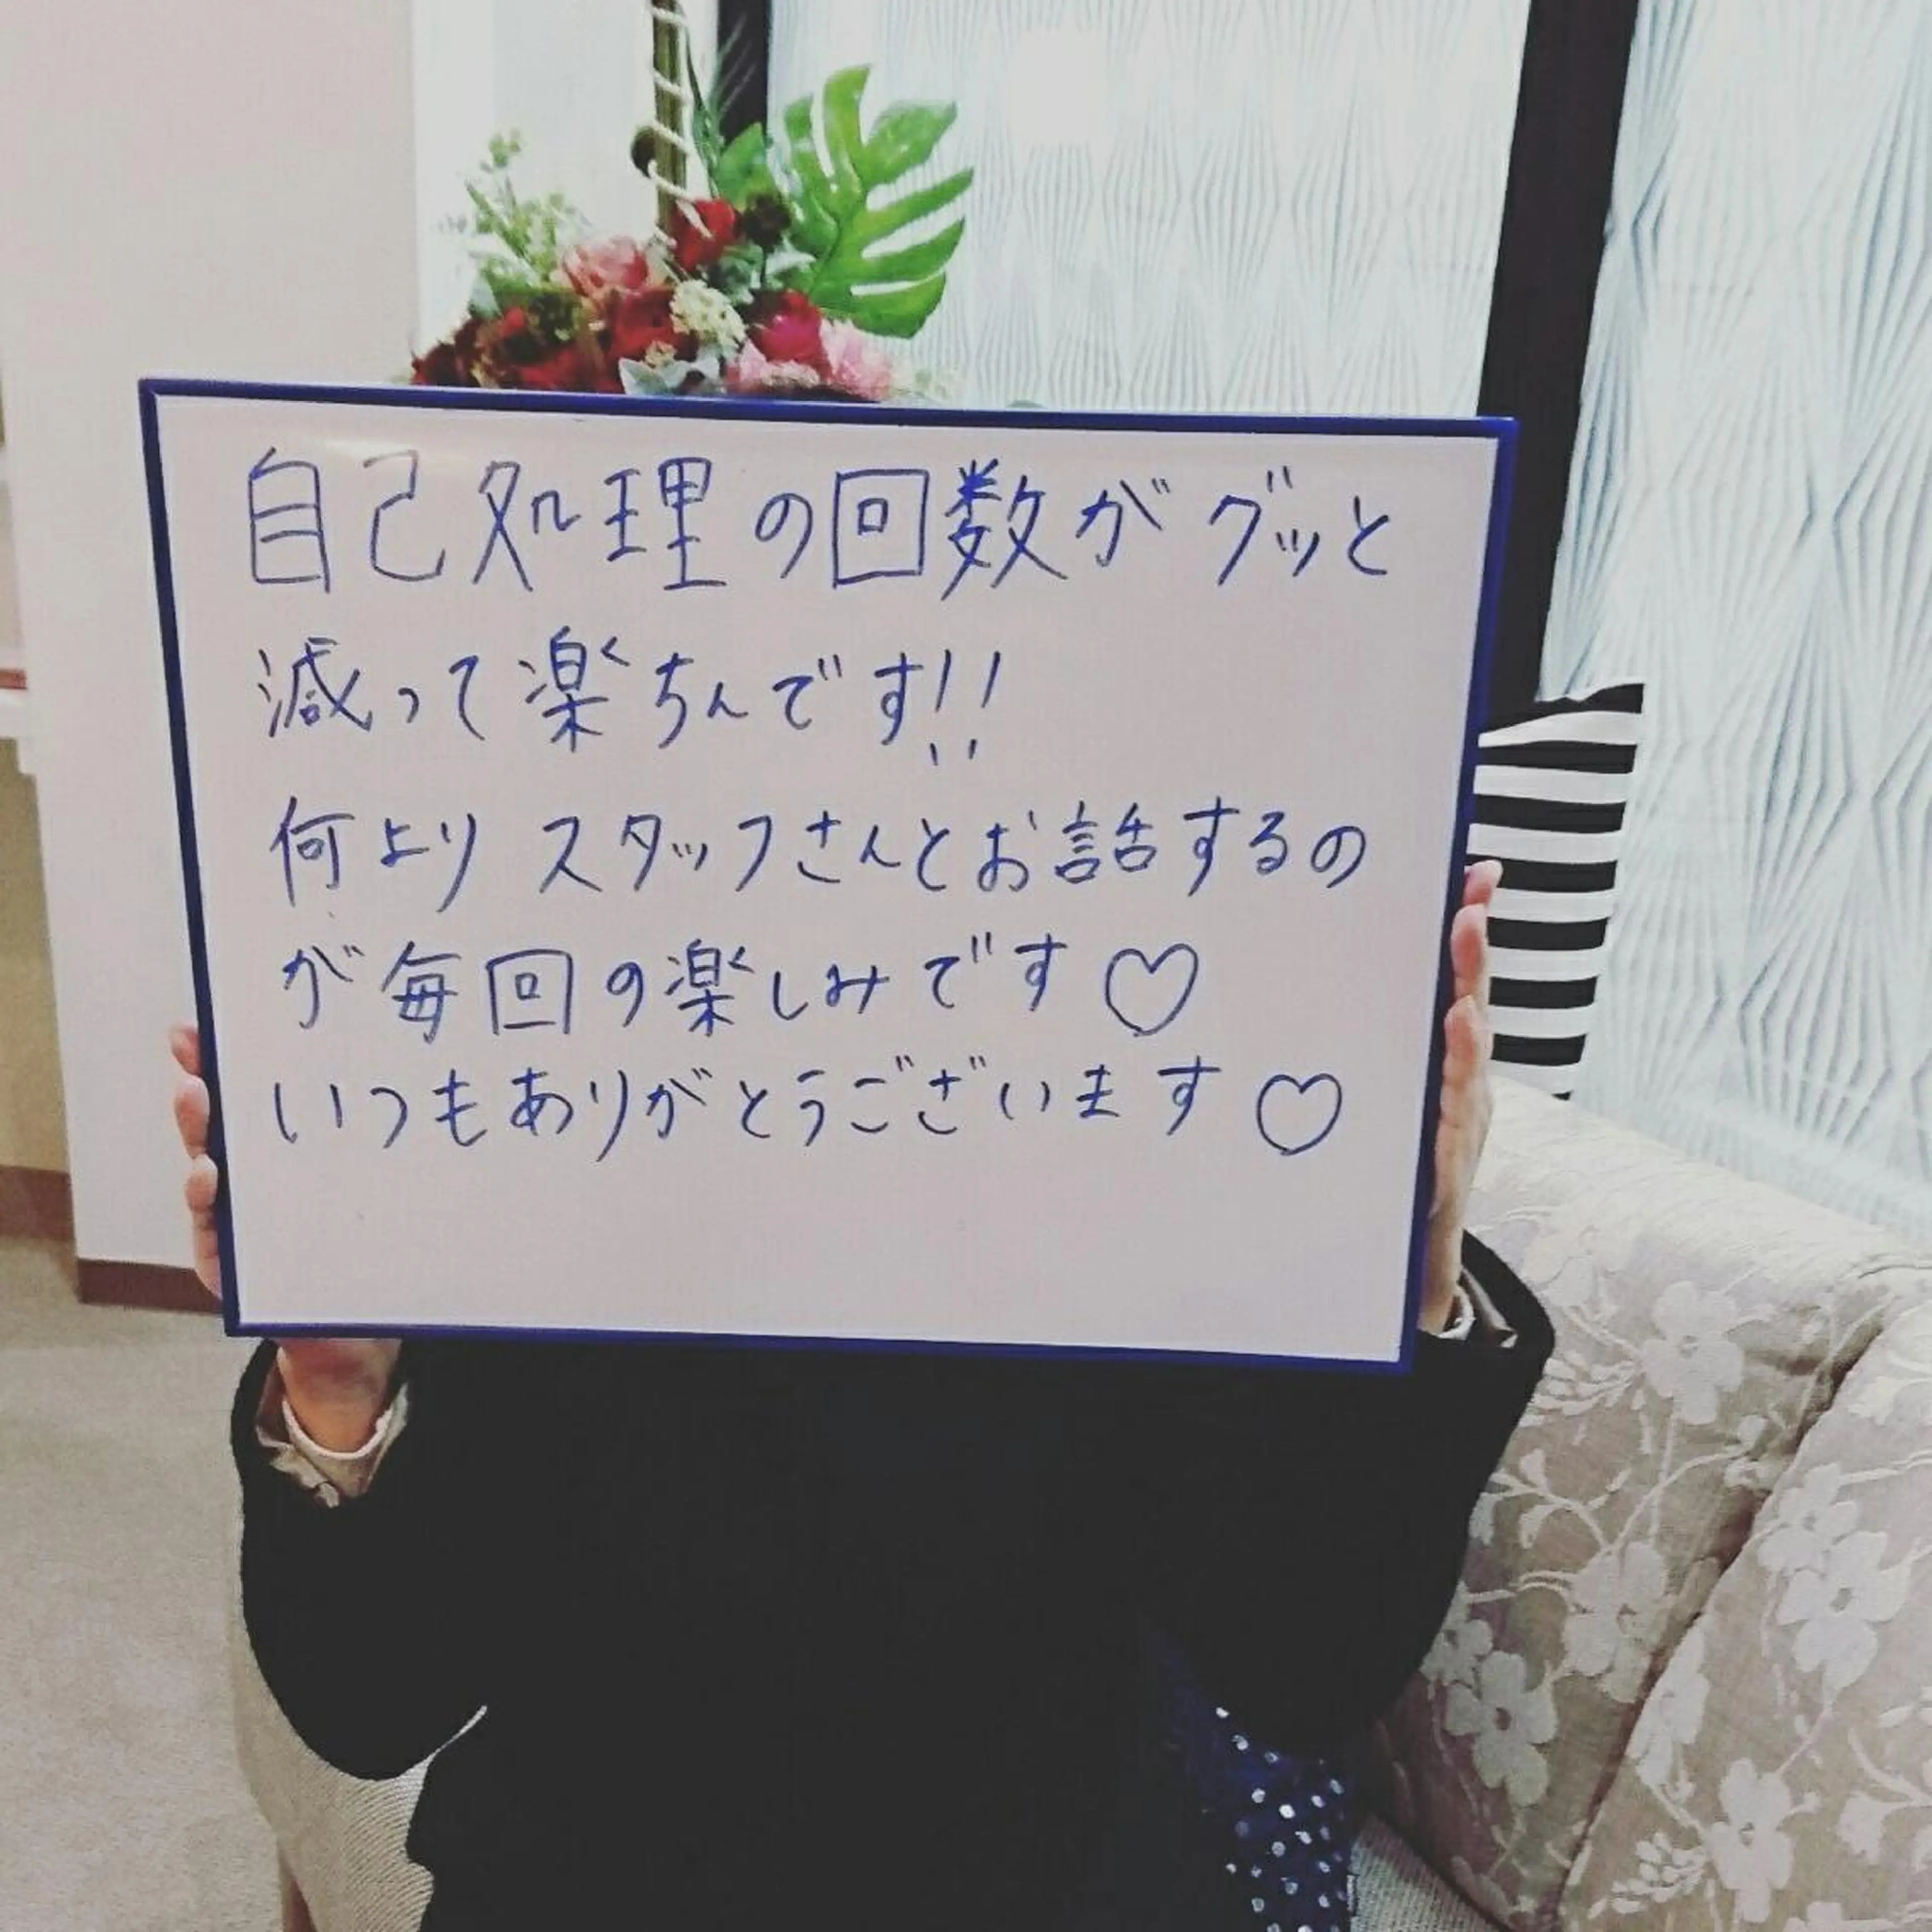 自己処理の回数がグッと
減って楽ちんです!!
何よりスタッフさんとお話するの
が毎回の楽しみです♡
いつもありがとうございます♡